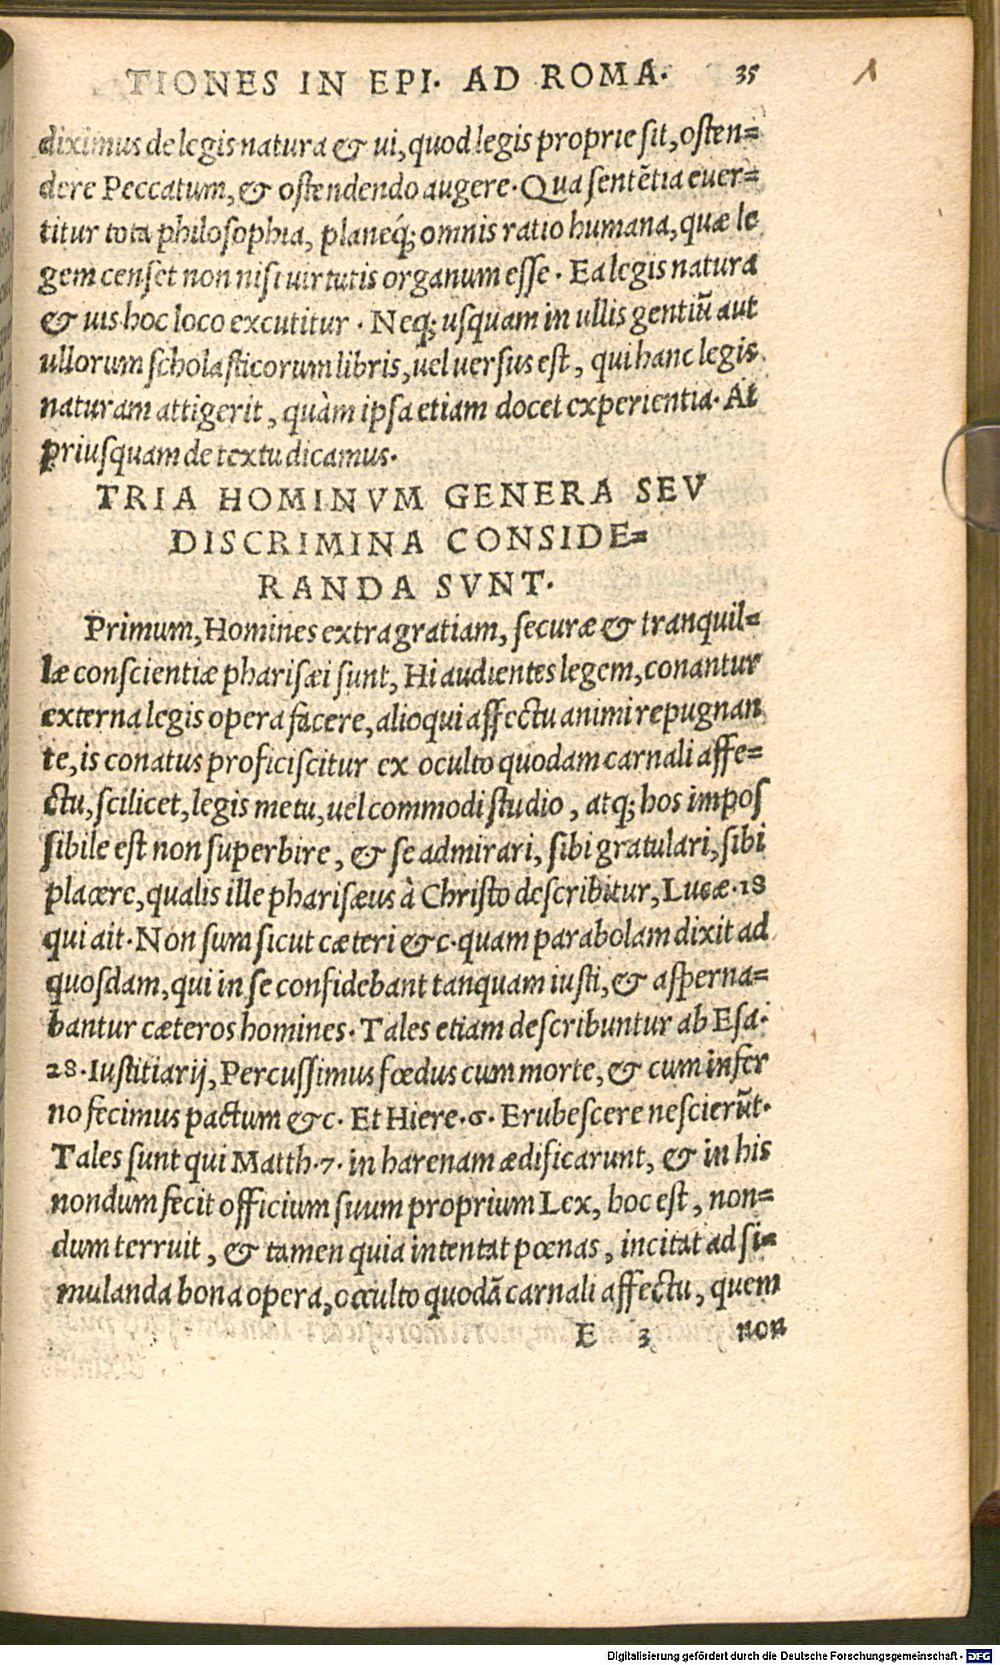 TIONES IN EPI. AD ROMA. 35
diximus de legis natura & ui, quod legis proprie sit, osten=
dere Peccatum, & ostendendo augere. Qua sentẽtia euer=
titur tota philosophia, planeq́; omnis ratio humana, quæ le
gem censet non nisi uirtutis organum esse. Ea legis natura
& uis hoc loco excutitur. Neq; usquam in ullis gentiũ aut
ullorum scholasticorum libris, uel uersus est, qui hanc legis
naturam attigerit, quàm ipsa etiam docet experientia. At
priusquam de textu dicamus.
TRIA HOMINVM GENERA SEV
DISCRIMINA CONSIDE=
RANDA SVNT.
Primum, Homines extra gratiam, securæ & tranquil=
læ conscientiæ pharisæi sunt, Hi audientes legem, conantur
externa legis opera facere, alioqui affectu animi repugnan
te, is conatus proficiscitur ex oculto quodam carnali affe=
ctu, scilicet, legis metu, uel commodi studio, atq; hos impos
sibile est non superbire, & se admirari, sibi gratulari, sibi
placere, qualis ille pharisæus à Christo describitur, Lucæ. 18
qui ait. Non sum sicut cæteri &c. quam parabolam dixit ad
quosdam, qui in se confidebant tanquam iusti, & asperna=
bantur cæteros homines. Tales etiam describuntur ab Esa.
28. Iustitiarij, Percussimus fœdus cum morte, & cum infer
no fecimus pactum &c. Et Hiere. 6. Erubescere nescierũt.
Tales sunt qui Matth. 7. in harenam ædificarunt, & in his
nondum fecit officium suum proprium Lex, hoc est, non=
dum terruit, & tamen quia intentat pœnas, incitat ad si=
mulanda bona opera, occulto quodã carnali affectu, quem
E 3 non
Digitalisierung gefördert durch die Deutsche Forschungsgemeinschaft - DFG